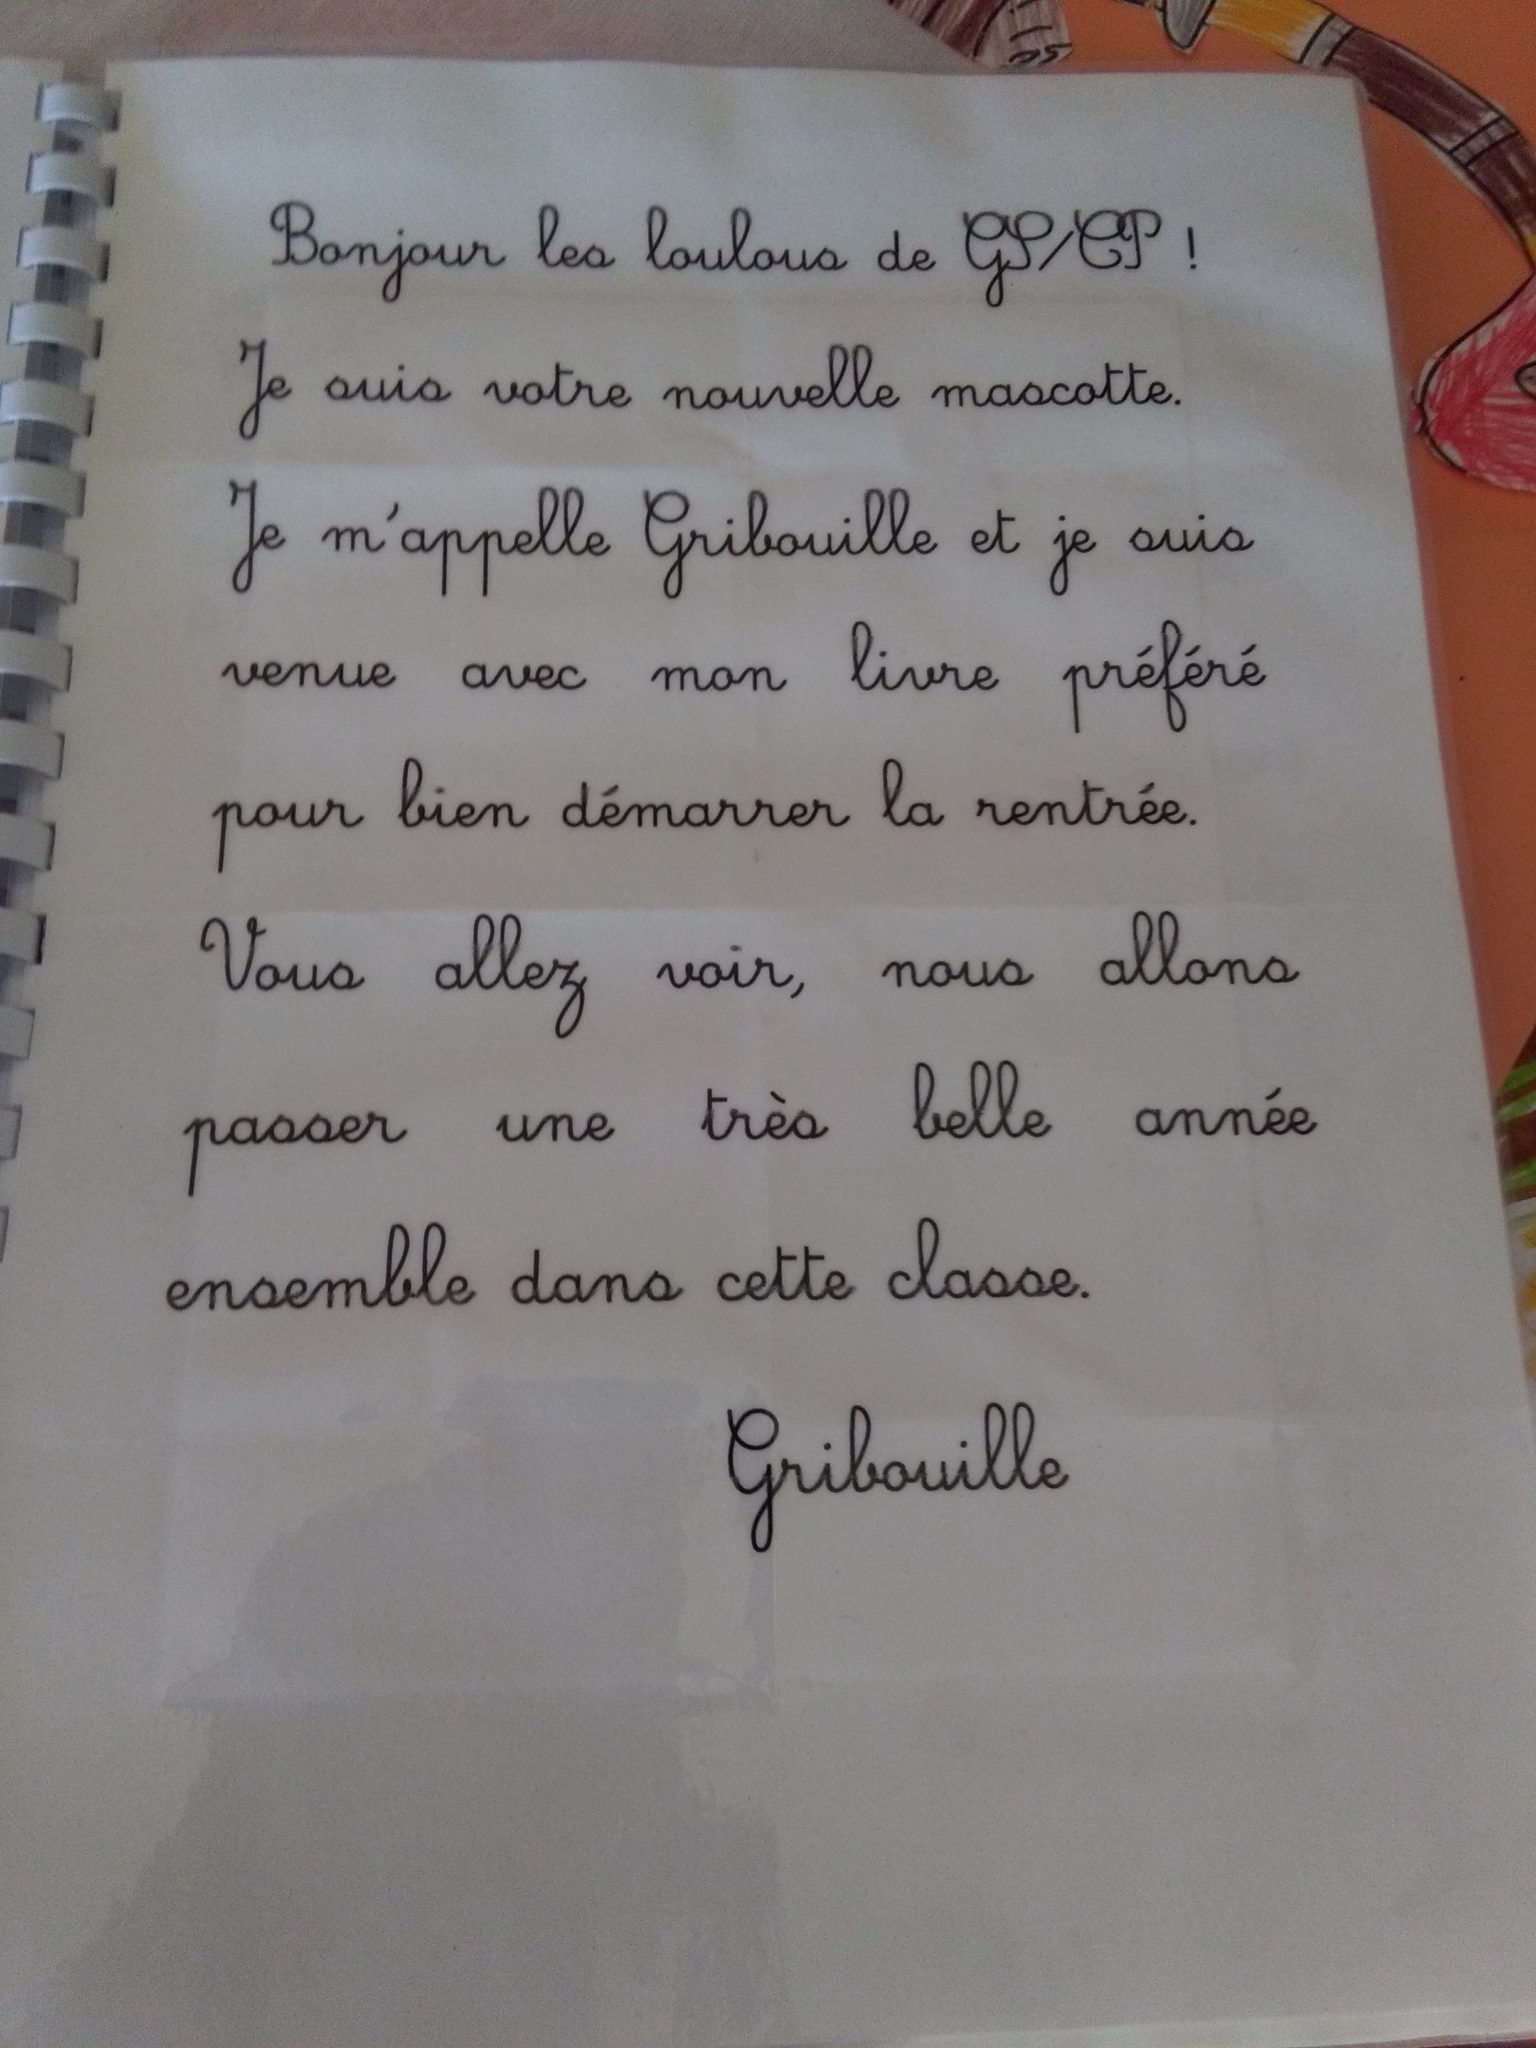 Bonjour les loulous de GS/CP !
Je suis votre nouvelle mascotte.
Je m'appelle Gribouille et je suis
venue avec mon livre préféré
pour bien démarrer la rentrée.
Vous allez voir, nous allons
passer une très belle année
ensemble dans cette classe.
Gribouille